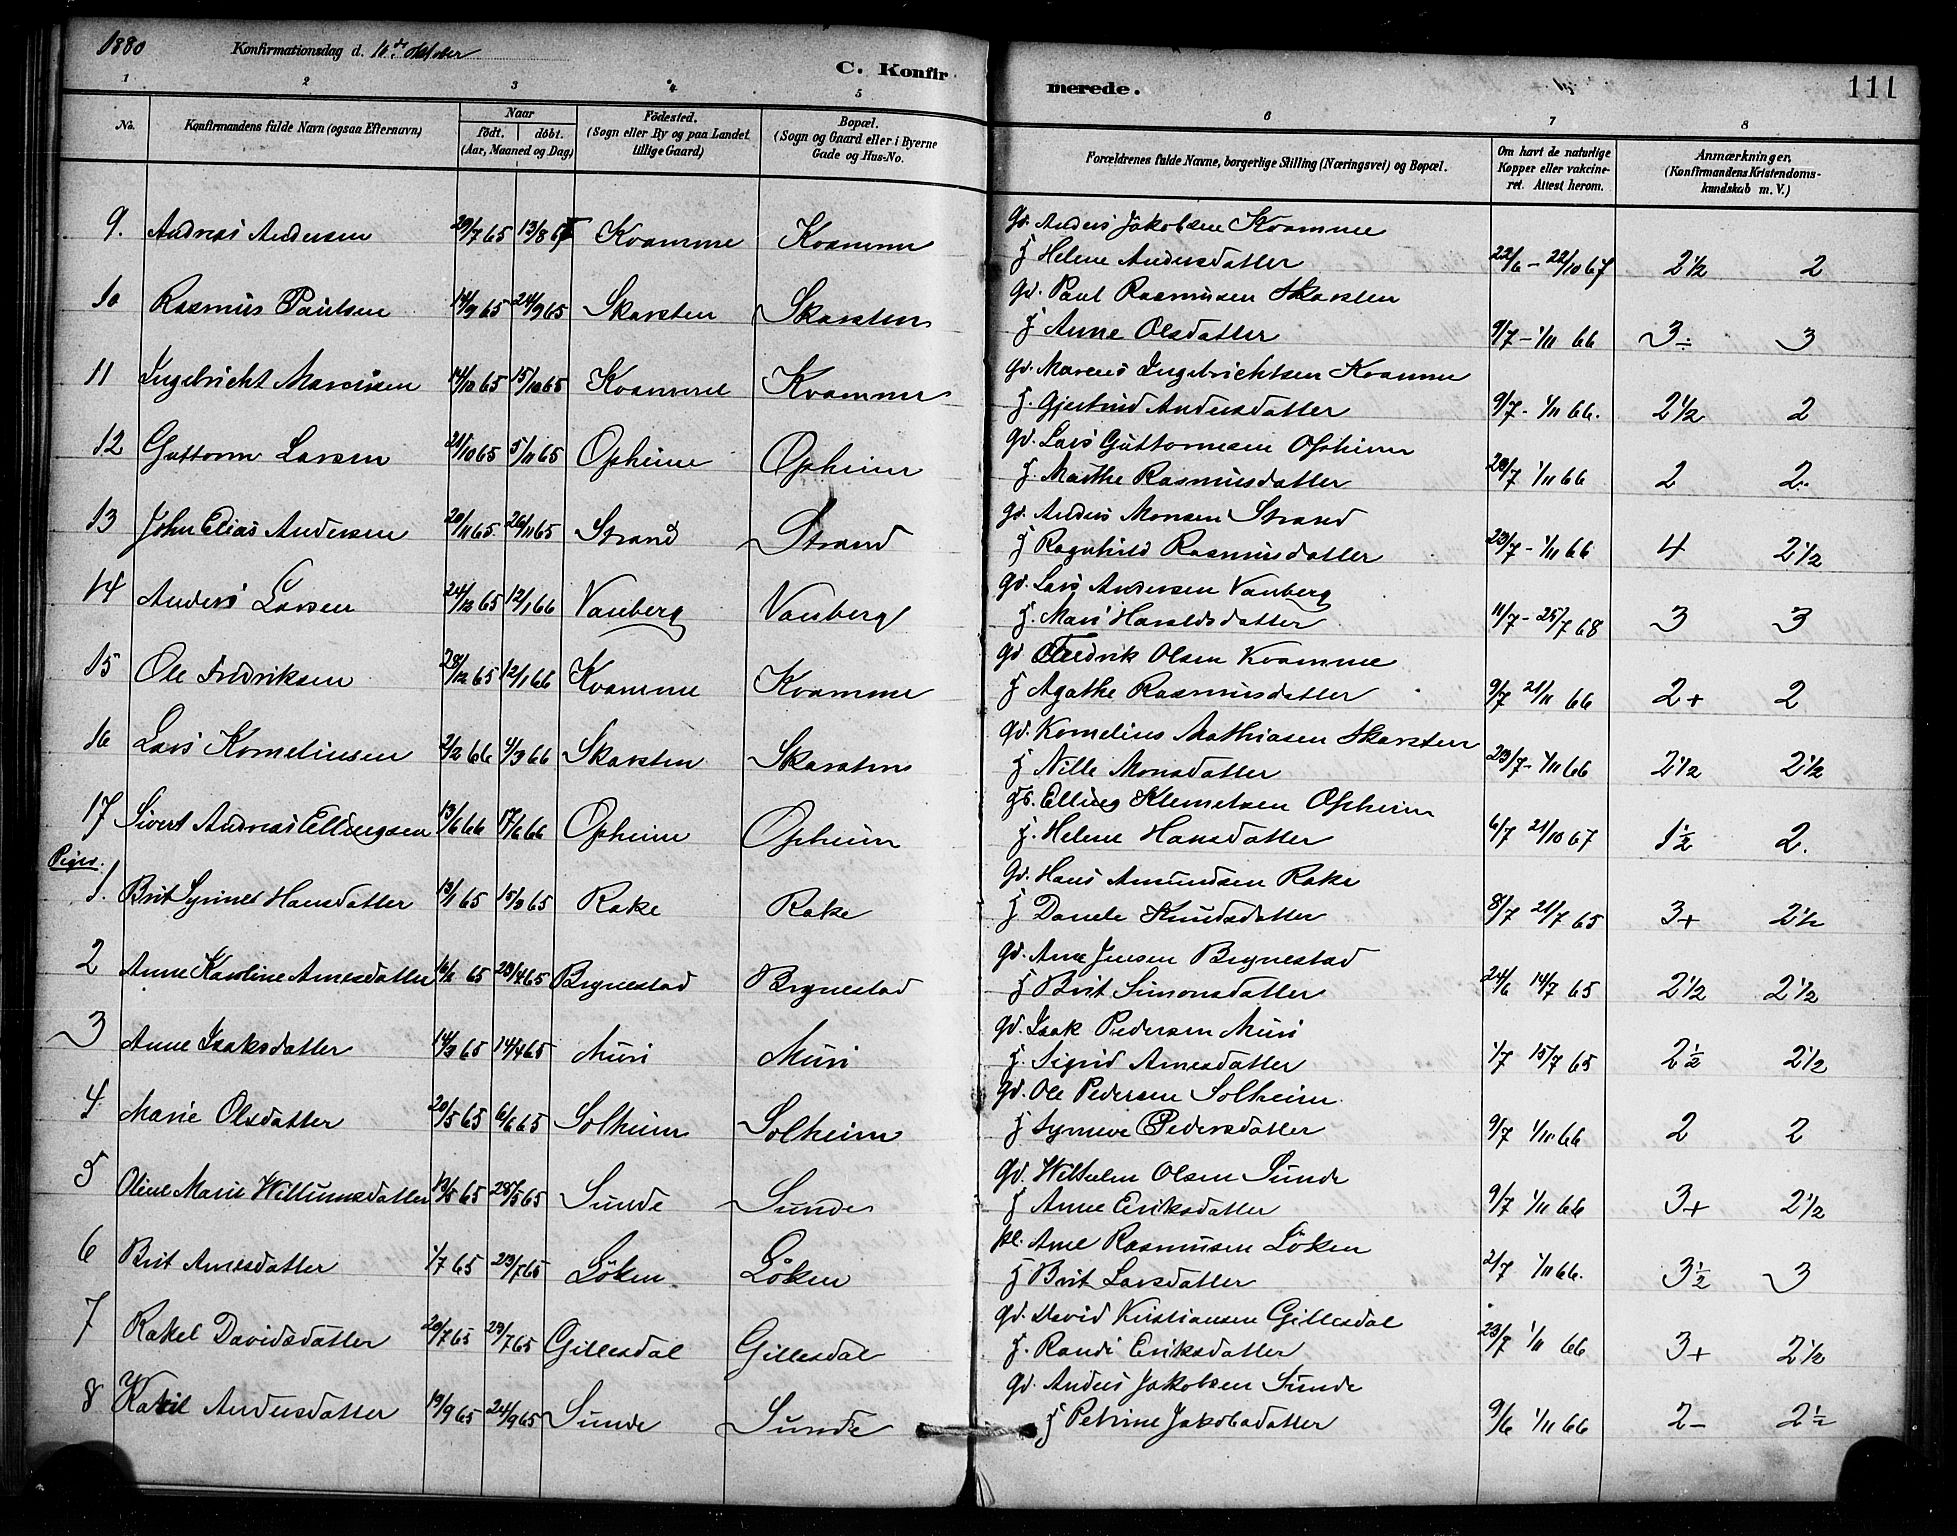 1880 Konfirmationsdag d. 10de oktober
C. Konfirmerede. 111
1 2 3 4 5 6 7 8
No. Konfirmandens fulde Navn (ogsaa Efternavn) Naar født. døbt. (Aar, Maaned og Dag) Fødested. (Sogn eller By og paa Landet tillige Gaard) Bopæl. (Sogn og Gaard eller i Byerne Gade og Hus-No. Forældrenes fulde Navne, borgerlige Stilling (Næringsvei) og Bopæl. Om havt de naturlige Kopper eller vakcineret. Attest herom. Anmærkninger. (Konfirmandens Kristendomskundskab m. V.)
9. Andreas Andersen 29/7 65 13/8 65 Kvamme Kvamme Gd. Anders Jakobsen Kvamme
H Helene Andersdatter 22/6 - 22/10 67 2½ 2
10 Rasmus Paulsen 14/9 65 24/9 65 Skarsten Skarsten Gd. Paul Rasmusen Skarsten
H Anne Olsdatter 9/7 - 1/11 66 3÷ 3
11 Ingebricht Marcusen 14/10 65 15/10 65 Kvamme Kvamme Gd. Marcus Ingebrichtsen Kvamme
H. Gjertrud Andersdatter 9/7 - 1/11 66. 2½ 2
12 Guttorm Larsen 21/10 65 5/11 65 Opheim Opheim Gd. Lars Guttormsen Opheim
H. Marthe Rasmusdatter 20/7 1/11 66 2 2.
13 John Elias Andersen 20/11 65. 26/11 65 Strand Strand Gd. Anders Monsen Strand
H Ragnhild Rasmusdatter 23/7 - 1/11 66 4 2½
14 Anders Larsen 24/12 65 12/1 66 Vanberg Vanberg Gd. Lars Andersen Vanberg
H. Mari Haraldsdatter 11/7 - 25/7 68 3 3
15 Ole Fredriksen 28/12 65 12/1 66 Kvamme Kvamme Gd Fredrik Olsen Kvamme
H Agathe Rasmusdatter 9/7 21/11 66 2+ 2
16 Lars Kornelius­en 2/2 66 4/3 66 Skarsten Skarsten Gd. Kornelius Mathiasen Skarsten
H Nille Monsdatter 23/7 - 1/11 66 2½ 2½
17 Sivert Andreas Ellingsen 13/6 66 17/6 66 Opheim Opheim Gd. Elling Klemetsen Opheim
H. Helene Hansdatter 6/7 21/10 67 1½ 2.
Piger.
1. Brit Synnev Hansdatter 13/1 65 15/3 65 Rake Rake Gd. Hans Amundsen Rake
H Danele Knudsdatter 8/7 21/7 65 3+ 2½
2 Anne Karoline Arnesdatter 16/1 65 23/4 65 Brynestad Brynestad Gd. Arne Jensen Brynestad
H Brit Simonsdatter 24/6 14/7 65 2½ 2½
3 Anne Isaksdatter 14/3 65 14/4 65 Muri Muri Gd. Isak Pedersen Muri
H. Sigrid Arnesdatter 1/7 15/7 65 2½ 2½
4 Marie Olsdatter 20/5 65 6/6 65 Solheim Solheim Gd. Ole Pedersen Solheim.
H Synneve Pedersdatter 9/7 1/11 66 2 2
5 Oline Marie Willumsdatter 19/5 65 28/5 65 Sunde Sunde Gd. Wilhelm Olsen Sunde
H Anne Eriksdatter 9/7 1/11 66 3+ 2½
6 Brit Arnesdatter 1/7 65 23/7 65 Löken Löken pl. Arne Rasmusen Löken
H Brit Larsdatter 2/7 1/11 66. 3½ 3
7 Rakel Davidsdatter 20/7 65 29/7 65 Gillesdal Gillesdal Gd. David Kristiansen Gillesdal
H. Randi Eriksdatter 23/7 1/11 66 3+ 2½
8 Andersdatter 19/9 65 24/9 65 Sunde Sunde Gd. Anders Jakobsen Sunde
H Petrine Jakobsdatter 9/6 1/11 66 2- 2½